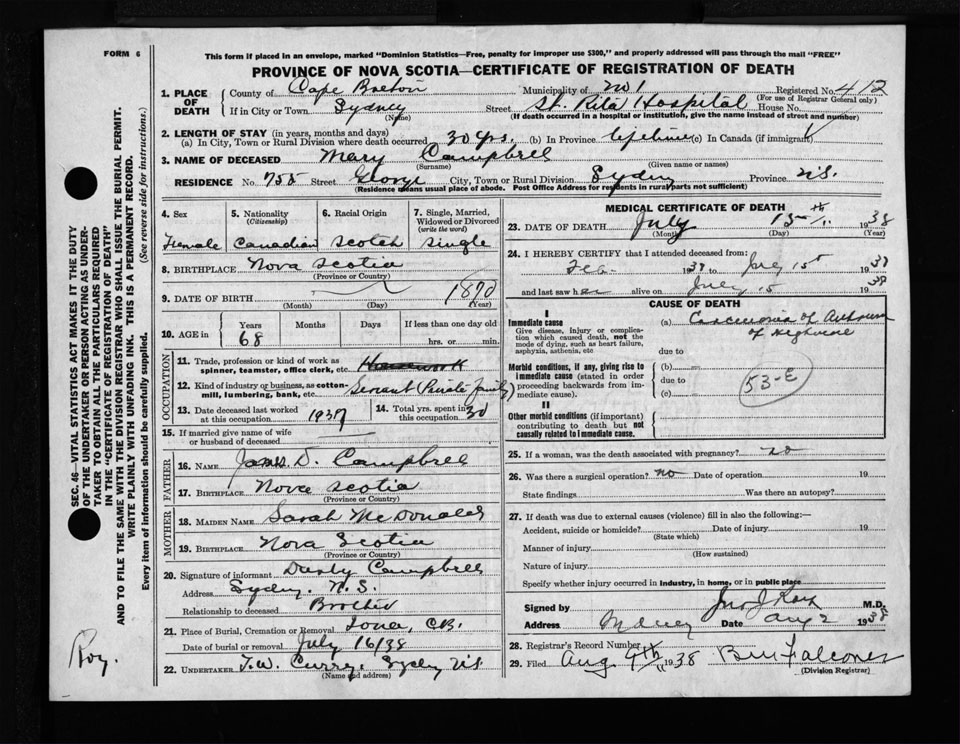 FORM 6
This form if placed in an envelope, marked "Dominion Statistics—Free, penalty for improper use $300," and properly addressed will pass through the mail "FREE"
PROVINCE OF NOVA SCOTIA—CERTIFICATE OF REGISTRATION OF DEATH
1. PLACE OF DEATH
County of Cape Breton Municipality of No 1 Registered No. 412
(For use of Registrar General only)
If in City or Town Sydney Street St. Rita Hospital House No.
(Name) (If death occurred in a hospital or institution, give the name instead of street and number)
2. LENGTH OF STAY (in years, months and days)
(a) In City, Town or Rural Division where death occurred 30 yrs. (b) In Province lifetime (c) In Canada (if immigrant)
3. NAME OF DECEASED Mary Campbell
(Surname) (Given name or names)
RESIDENCE No. 755 Street George City, Town or Rural Division Sydney Province N.S.
(Residence means usual place of abode. Post Office Address for residents in rural parts not sufficient)
4. Sex Female
5. Nationality (Citizenship) Canadian
6. Racial Origin Scotch
7. Single, Married, Widowed or Divorced (write the word) Single
8. BIRTHPLACE Nova Scotia
(Province or Country)
9. DATE OF BIRTH 1870
(Month) (Day) (Year)
10. AGE in Years Months Days If less than one day
68 hrs. or min.
OCCUPATION
11. Trade, profession or kind of work as spinner, teamster, office clerk, etc. Housework
12. Kind of industry or business, as cotton-mill, lumbering, bank, etc. Servant (Private family)
13. Date deceased last worked at this occupation 1937
14. Total yrs. spent in this occupation 30
15. If married give name of wife or husband of deceased
FATHER
16. NAME James D. Campbell
17. BIRTHPLACE Nova Scotia
(Province or Country)
MOTHER
18. MAIDEN NAME Sarah McDonald
19. BIRTHPLACE Nova Scotia
(Province or Country)
20. Signature of informant Campbell
Address Sydney. N.S.
Relationship to deceased Brother
21. Place of Burial, Cremation or Removal Iona, C.B.
Date of burial or removal July 16/38
22. UNDERTAKER T.W. Curry, Sydney N.S.
(Name and address)
MEDICAL CERTIFICATE OF DEATH
23. DATE OF DEATH July 15th 1938
(Month) (Day) (Year)
24. I HEREBY CERTIFY that I attended deceased from:
Feb. 1938 to July 15th 1938
and last saw her alive on July 15 1938
CAUSE OF DEATH
I
Immediate cause
Give disease, injury or complication which caused death, not the mode of dying, such as heart failure, asphyxia, asthenia, etc
(a) Carcinoma of Antrum of Highmore
due to
Morbid conditions, if any, giving rise to immediate cause (stated in order proceeding backwards from immediate cause).
(b)
due to
(c)
53-E
II
Other morbid conditions (if important) contributing to death but not causally related to immediate cause.
25. If a woman, was the death associated with pregnancy? no
26. Was there a surgical operation? no Date of operation 19
State findings Was there an autopsy?
27. If death was due to external causes (violence) fill in also the following:—
Accident, suicide or homicide? Date of injury 19
(State which)
Manner of injury
(How sustained)
Nature of injury
Specify whether injury occurred in industry, in home, or in public place
Signed by M.D.
Address Sydney Date Aug 2 1938
28. Registrar's Record Number
29. Filed Aug 4th 1938 Falconer
(Division Registrar)
SEC. 46—VITAL STATISTICS ACT MAKES IT THE DUTY
OF THE UNDERTAKER OR PERSON ACTING AS UNDERTAKER TO OBTAIN ALL THE PARTICULARS REQUIRED
IN THE "CERTIFICATE OF REGISTRATION OF DEATH"
AND TO FILE THE SAME WITH THE DIVISION REGISTRAR WHO SHALL ISSUE THE BURIAL PERMIT.
WRITE PLAINLY WITH UNFADING INK. THIS IS A PERMANENT RECORD.
Every item of information should be carefully supplied. (See reverse side for instructions.)
Roy.